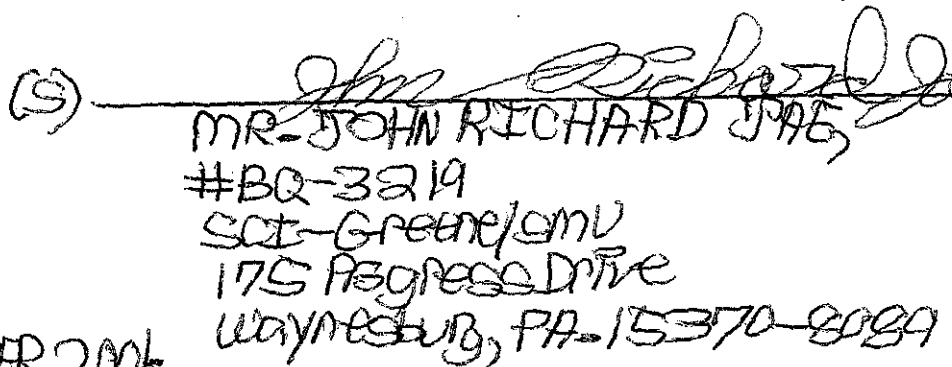 (S) John Richard Ja
MR. JOHN RICHARD JAE,
#BQ-3219
SCI-Greene/SMU
175 Progress Drive
Waynesburg, PA. 15370-8089